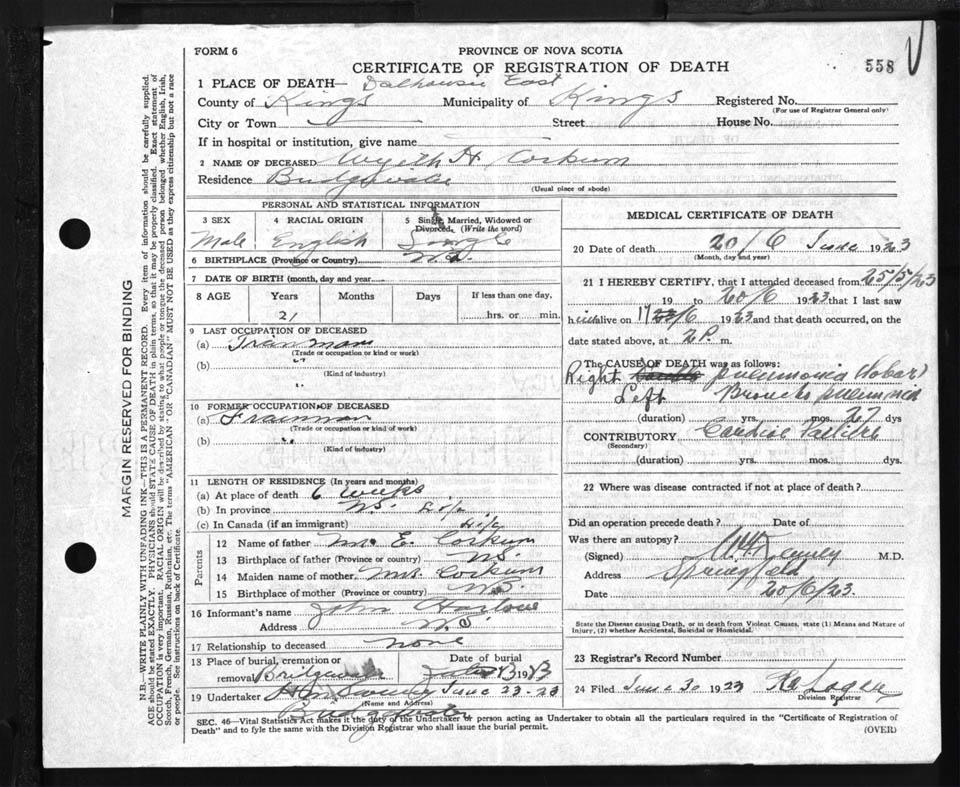 FORM 6
PROVINCE OF NOVA SCOTIA
CERTIFICATE OF REGISTRATION OF DEATH
558
1 PLACE OF DEATH— Dalhousie East
County of Kings Municipality of Kings Registered No.
(For use of Registrar General only)
City or Town Street House No.
If in hospital or institution, give name
2 NAME OF DECEASED Wyeth H Corkum
Residence Bridgewater
(Usual place of abode)
PERSONAL AND STATISTICAL INFORMATION
3 SEX
Male
4 RACIAL ORIGIN
English
5 Single, Married, Widowed or Divorced. (Write the word)
Single
6 BIRTHPLACE (Province or Country) N.S.
7 DATE OF BIRTH (month, day and year)
8 AGE Years Months Days If less than one day,
21 hrs. or min.
9 LAST OCCUPATION OF DECEASED
(a) Trainman
(Trade or occupation or kind or work)
(b) "
(Kind of industry)
10 FORMER OCCUPATION OF DECEASED
(a) Trainman
(Trade or occupation or kind of work)
(b) "
(Kind of industry)
11 LENGTH OF RESIDENCE (In years and months)
(a) At place of death 6 weeks
(b) In province NS. Life
(c) In Canada (if an immigrant) Life
Parents
12 Name of father Mr E. Corkum
13 Birthplace of father (Province or country) NS.
14 Maiden name of mother Mrs. Corkum
15 Birthplace of mother (Province or country) NS.
16 Informant's name John Harlow
Address N.S.
17 Relationship to deceased none
18 Place of burial, cremation or removal Bridgewater
Date of burial 1923
19 Undertaker June 23-23
(Name and Address)
Bridgewater
MEDICAL CERTIFICATE OF DEATH
20 Date of death 20/6 June 1923
(Month, day and year)
21 I HEREBY CERTIFY, that I attended deceased from 25/5/23
19 to 20/6 1923 that I last saw
him alive on 19/6 1923 and that death occurred, on the
date stated above, at 2 P. m.
The CAUSE OF DEATH was as follows:
Right pneumonia (lobar)
Left Broncho pneumonia
(duration) yrs. mos. 27 dys
CONTRIBUTORY Cardiac failure
(Secondary)
(duration) yrs. mos. dys.
22 Where was disease contracted if not at place of death?
Did an operation precede death? Date of
Was there an autopsy?
(Signed) M.D.
Address Springfield
Date 20/6/23.
State the Disease causing Death, or in death from Violent Causes, state (1) Means and Nature of Injury, (2) whether Accidental, Suicidal or Homicidal.
23 Registrar's Record Number
24 Filed June 30 1923 Logan
Division Registrar
SEC. 46—Vital Statistics Act makes it the duty of the Undertaker or person acting as Undertaker to obtain all the particulars required in the "Certificate of Registration of Death" and to fyle the same with the Division Registrar who shall issue the burial permit.
(OVER)
MARGIN RESERVED FOR BINDING
N.B.—WRITE PLAINLY WITH UNFADING INK—THIS IS A PERMANENT RECORD. Every item of information should be carefully supplied.
AGE should be stated EXACTLY. PHYSICIANS should STATE CAUSE OF DEATH in plain terms, so that it may be properly classified. Exact statement of
OCCUPATION is very important. RACIAL ORIGIN will be described by stating to what people or tongue the deceased person belonged whether English, Irish,
Scotch, French, German, Russian, Ruthenian, etc. The terms "AMERICAN" OR "CANADIAN" MUST NOT BE USED as they express citizenship but not a race
or people. See instructions on back of Certificate.